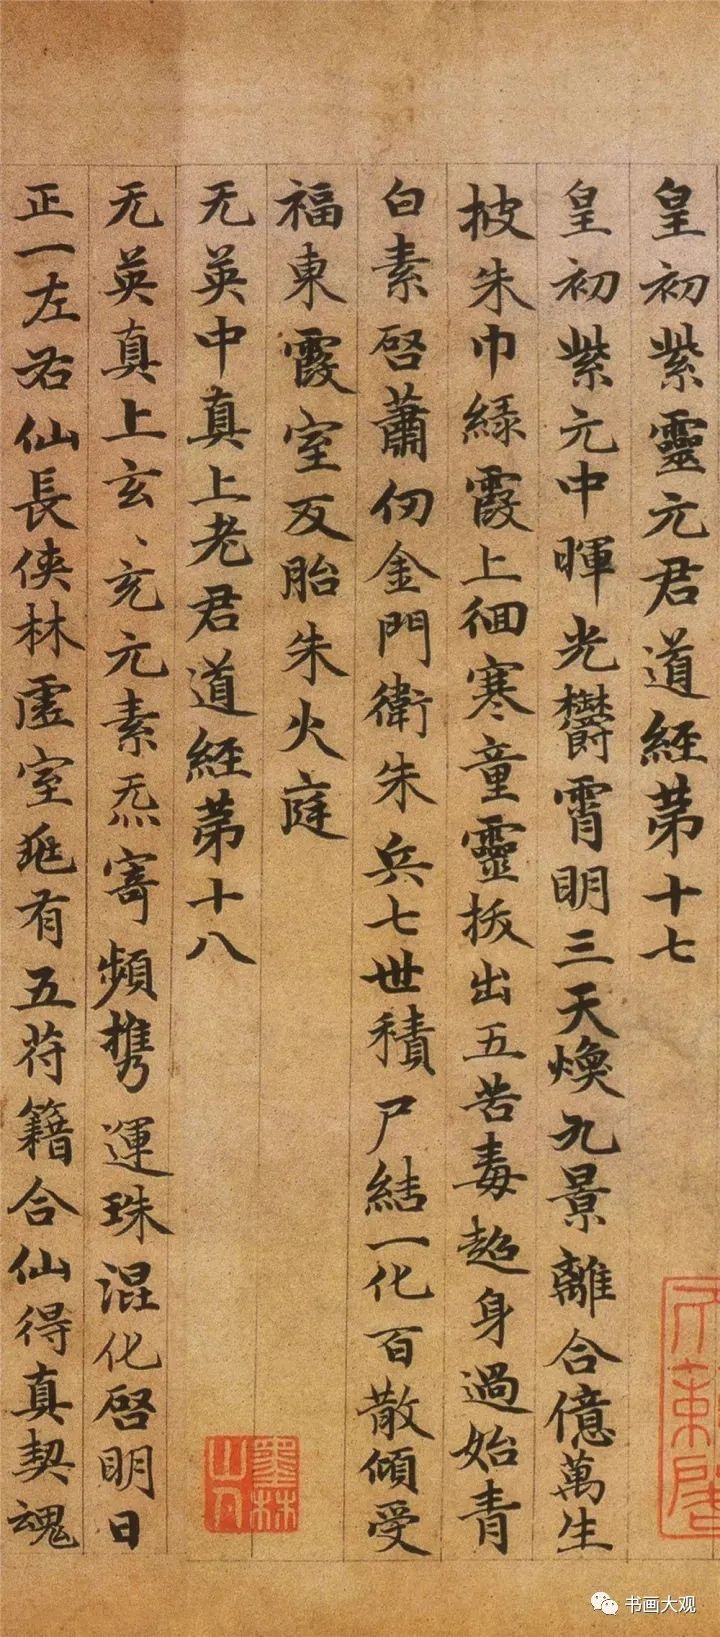 皇初紫靈元君道經苐十七
皇初紫元中暉光欝霄明三天煥九景離合億萬生
披朱巾緑霞上徊寒童靈拔出五苦毒超身過始青
白素啓蕭仞金門衛朱兵七世積尸結一化百散傾受
福東霞室反胎朱火庭
无英中真上老君道經苐十八
无英真上玄、充元素炁寄頻携運珠混化啓明日
正一左右仙長侠林虛室逃有五苻籍合仙得真契魂
墨林
山人
书画大观